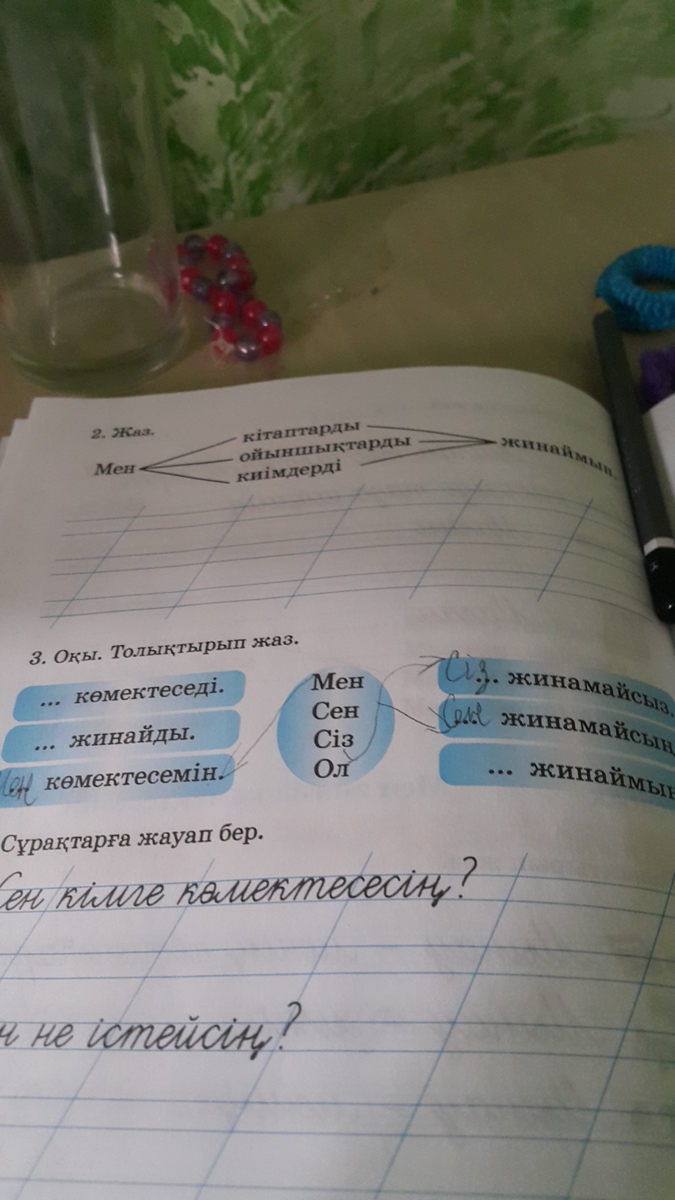 2. Жаз.
Мен
кітаптарды
ойыншықтарды
киімдерді
жинаймын.
3. Оқы. Толықтырып жаз.
... көмектеседі.
... жинайды.
Мен көмектесемін.
Мен
Сен
Сіз
Ол
Сіз. жинамайсыз.
Сен жинамайсың
... жинаймын
Сұрақтарға жауап бер.
Сен кімге көмектесесің?
н не істейсің?